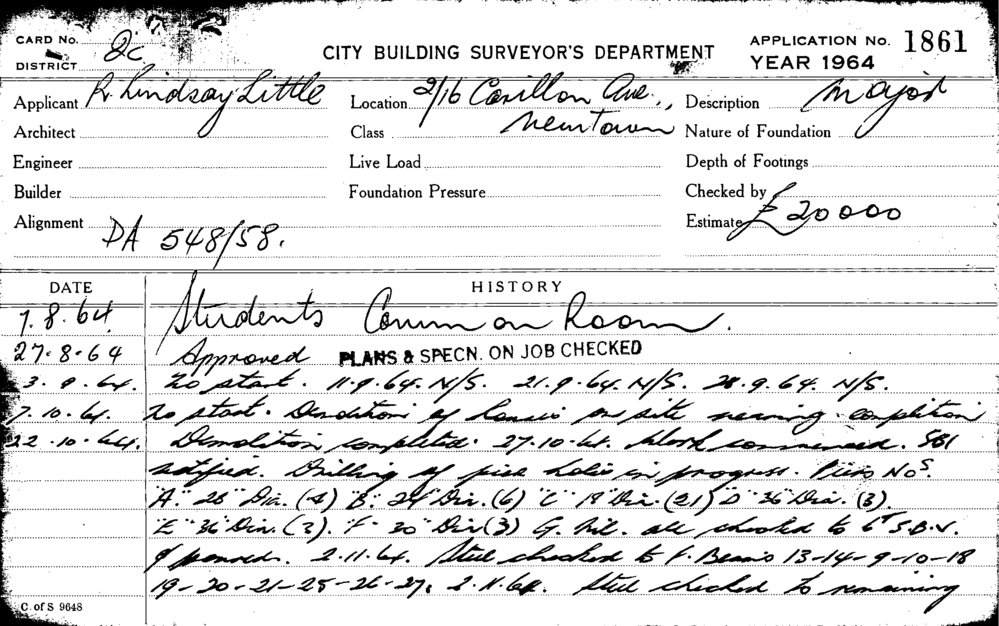 CARD No.
DISTRICT 2c
CITY BUILDING SURVEYOR'S DEPARTMENT
APPLICATION No. 1861
YEAR 1964
Applicant R. Lindsay Little
Location 2/16 Carillon Ave., Newtown
Description Major
Architect
Class
Nature of Foundation
Engineer
Live Load
Depth of Footings
Builder
Foundation Pressure
Checked by
Alignment DA 548/58.
Estimate £20000
DATE HISTORY
7.8.64 Students Common Room.
27.8.64 Approved PLANS & SPECN. ON JOB CHECKED
3.9.64. No start. 11.9.64. N/S. 21.9.64. N/S. 28.9.64. N/S.
7.10.64. No start. Demolition of houses on site nearing completion
22.10.64. Demolition completed. 27.10.64. Work commenced. SBI
notified. Drilling of pier holes in progress. Piers Nos.
"A" 28" Dia. (4) "B" 24" Dia. (6) "C" 18" Dia. (21) "D" 36" Dia. (3).
"E" 36" Dia. (2). "F" 30" Dia (3) G. Nil. all checked to
2.11.64. Steel checked to F. Beams 13-14-9-10-18
19-20-21-25-26-27. 2.11.64. Steel checked to remaining
C. of S 9648